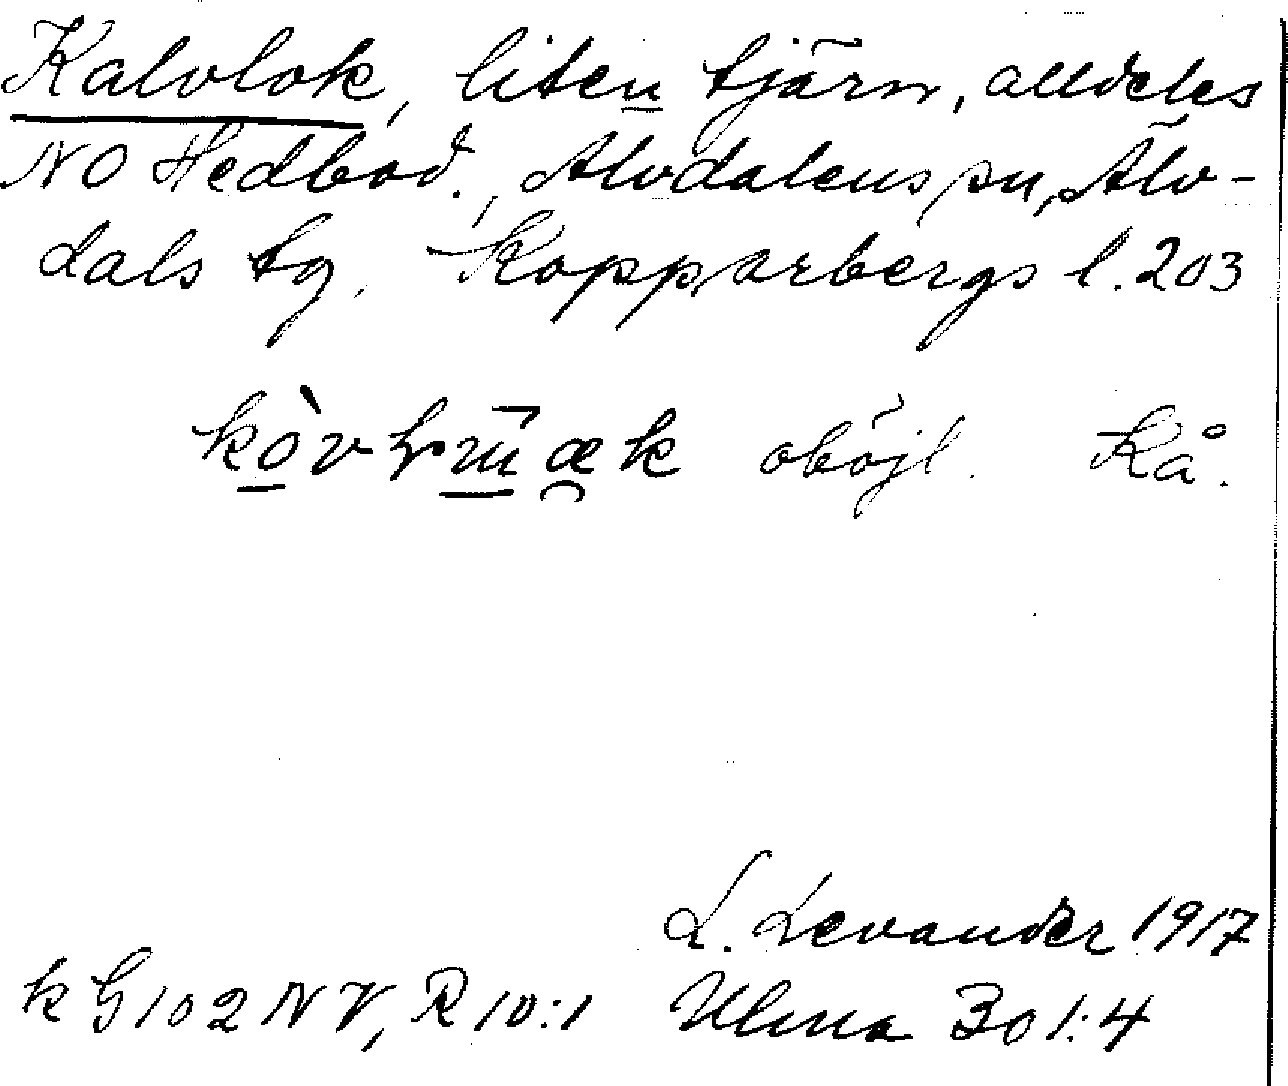 Kalvlok, liten tjärn, alldeles
NO Hedbod., Älvdalens sn, Älv-
dals tg, Kopparbergs l. 203
oböjl. Kå.
L. Levander 1917
k G 102 NV, R 10:1 Ulma 301:4